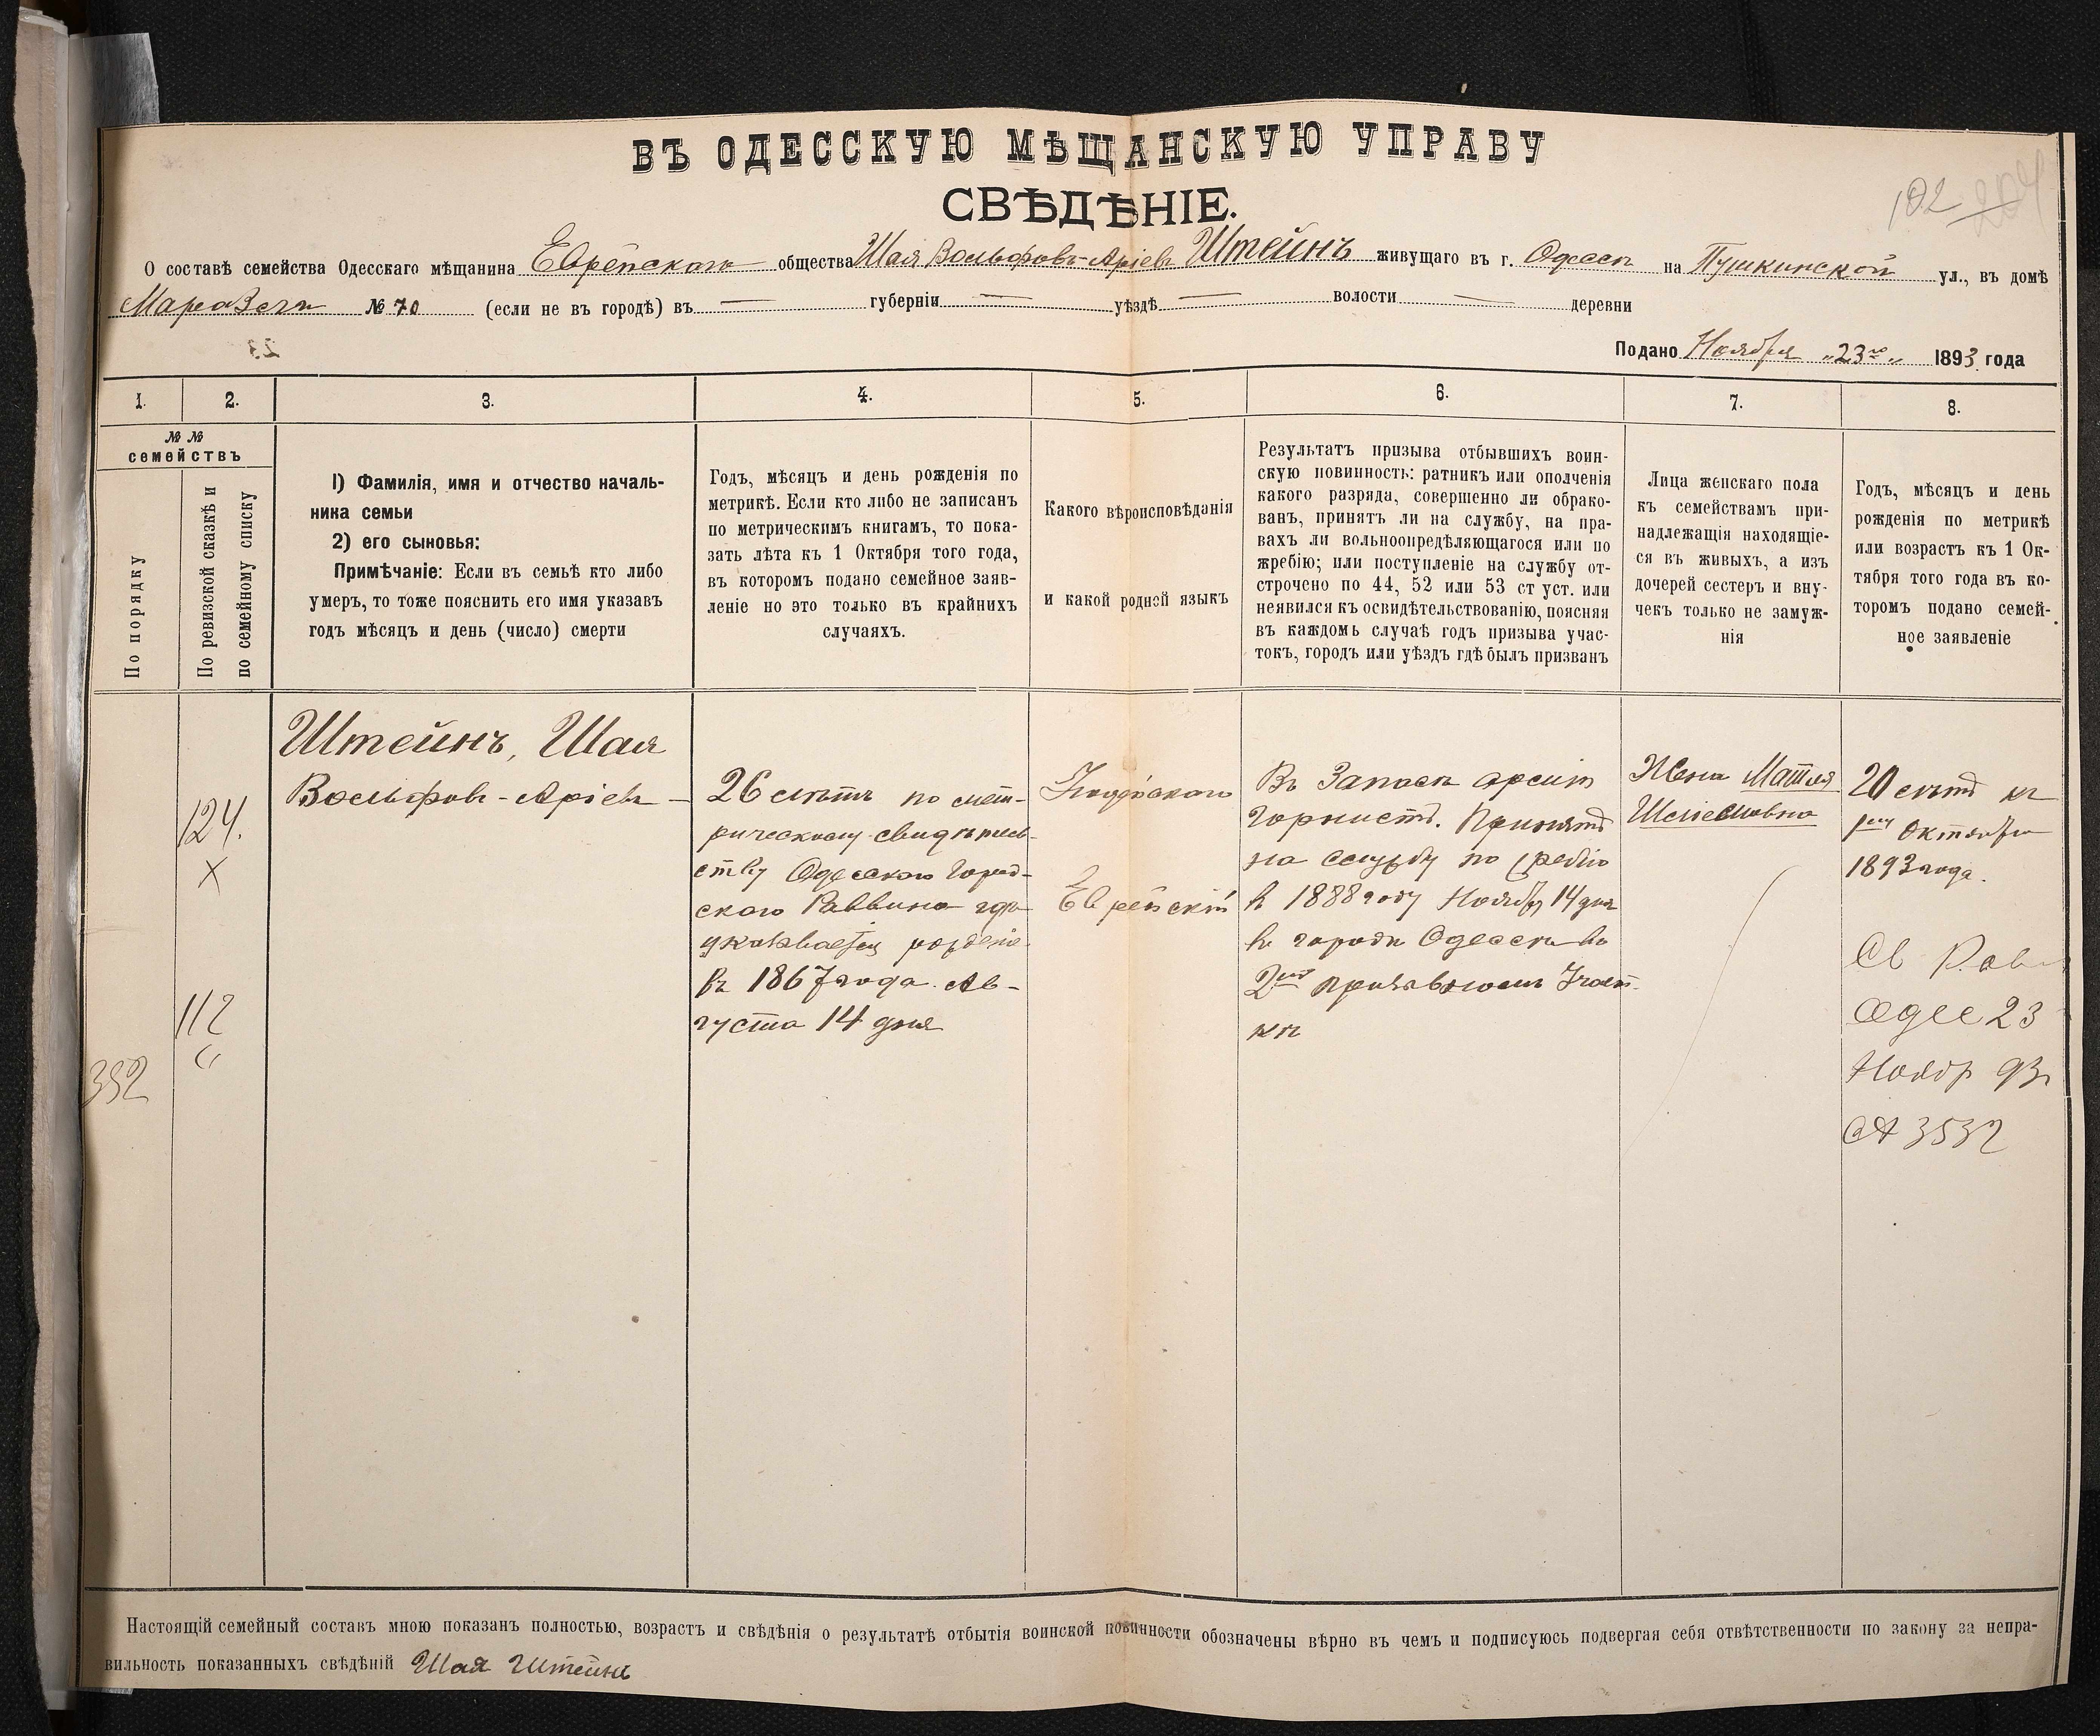 ВЪ ОДЕССКУЮ МѢЩАНСКУЮ УПРАВУ
СВѢДѢНІЕ.
102 204
О составѣ семейства Одесскаго мѣщанина Еврейскаго общества Шая Вольфовъ-Аріевъ Штейнъ живущаго въ г. Одессѣ на Пушкинской ул., въ домѣ
№ 70 (если не въ городѣ) въ — губерніи — уѣздѣ — волости — деревни
Подано Ноября „23го„ 1893 года
1. 2. 3. 4. 5. 6. 7. 8.
№№
семействъ
По порядку
По ревизской сказкѣ и
по семейному списку
1) Фамилія, имя и отчество началь-
ника семьи
2) его сыновья:
Примѣчаніе: Если въ семьѣ кто либо
умеръ, то тоже пояснить его имя указавъ
годъ мѣсяцъ и день (число) смерти
Годъ, мѣсяцъ и день рожденія по
метрикѣ. Если кто либо не записанъ
по метрическимъ книгамъ, то пока-
зать лѣта къ 1 Октября того года,
въ которомъ подано семейное заяв-
леніе но это только въ крайнихъ
случаяхъ.
Какого вѣроисповѣданія
и какой родной языкъ
Результатъ призыва отбывшихъ воин-
скую повинность: ратникъ или ополченія
какого разряда, совершенно ли обрако-
ванъ, принятъ ли на службу, на пра-
вахъ ли вольноопредѣляющагося или по
жребію; или поступленіе на службу от-
строчено по 44, 52 или 53 ст уст. или
неявился къ освидѣтельствованію, поясняя
въ каждомъ случаѣ годъ призыва учас-
токъ, городъ или уѣздъ гдѣ былъ призванъ
Лица женскаго пола
къ семействамъ при-
надлежащія находящіе-
ся въ живыхъ, а изъ
дочерей сестеръ и вну-
чекъ только не замуж-
нія
Годъ, мѣсяцъ и день
рожденія по метрикѣ
или возрастъ къ 1 Ок-
тября того года въ ко-
торомъ подано семей-
ное заявленіе
124.
X
112
"
352
Штейнъ, Шая
Вольфовъ-Аріевъ —
26 лѣтъ по мет-
рическому свидѣтель-
ству Одесскаго город-
ского Раввина гдѣ
указывается рожденіе
въ 1867 года. Ав-
густа 14 дня
Іудейскаго
Еврейскій
Въ Запасѣ арміи
горнистъ. Принятъ
на службу по жребію
въ 1888 году Ноября 14 дня
въ городѣ Одессѣ во
2мъ призывномъ Участ-
кѣ
Жена Матля
20 лѣтъ къ
1му Октября
1893 года.
Одес 23
Нояbр 93
3532
Настоящій семейный составъ мною показанъ полностью, возрастъ и свѣдѣнія о результатѣ отбытія воинской повинности обозначены вѣрно въ чемъ и подписуюсь подвергая себя отвѣтственности по закону за непра-
вильность показанныхъ свѣдѣній Шая Штейнъ